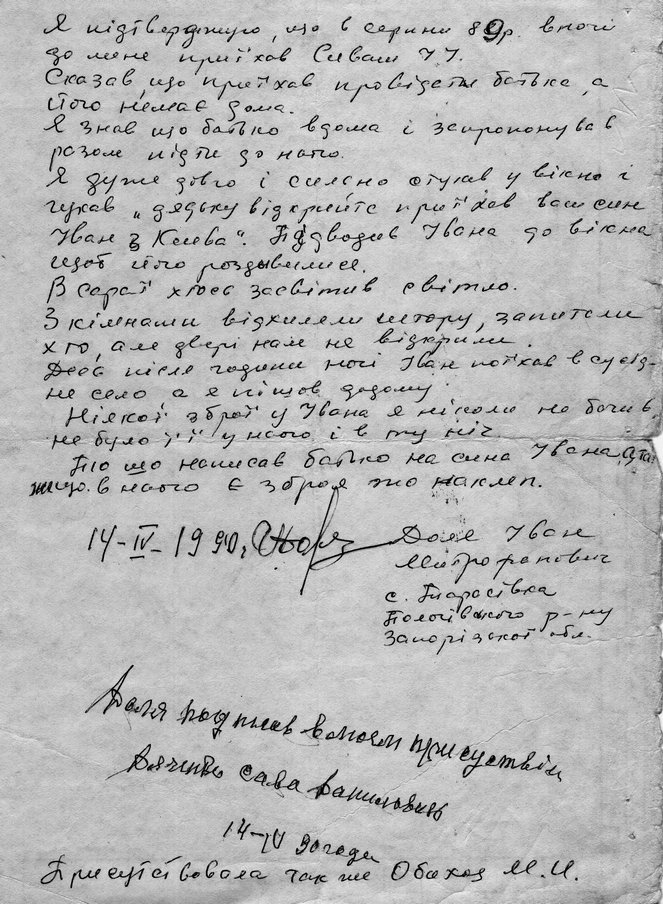 Я підтверджую, що в серпни 89р. вночі
до мене приїхав Сиваш І.І.
Сказав, що приїхав провідати батька, а
його немає дома.
Я знав що батько вдома і запропонував
разом підти до нього.
Я дуже довго і сильно стукав у вікно і
гукав „дядьку відкрийте приїхав ваш син
Іван з Києва“. Підводив Івана до вікна
щоб його роздивилися.
В сараї хтось засвітив світло.
З кімнати відхиляли штору, запитали
хто, але двері нам не відкрили.
Десь після години ночі Іван поїхав в сусід-
нє село а я пішов додому.
Ніякої зброї у Івана я ніколи не бачив
не було її у нього і в ту ніч.
То що написав батько на сина Івана,
що в нього є зброя то наклеп.
14-IV-1990.
Доля Іван
Митрофанович
с. Тарасівка
Пологівського р-ну
Запорізької обл.
Доля подписав в моєм присуствіи
Сава Данилович
14-IV 90 года
Присутствовала так же М.И.